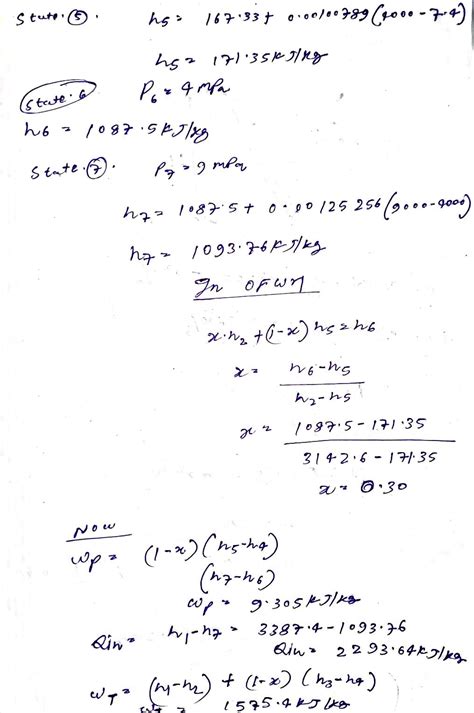 State. ⑤. h5 = 167.33 + 0.00100789 (4000 - 7.4)
h5 = 171.35 kJ/kg
State. 6 P6 = 4 mPa
h6 = 1087.5 kJ/kg
State. ⑦. P7 = 9 mPa
h7 = 1087.5 + 0.00125256 (9000-4000)
h7 = 1093.76 kJ/kg
In OFWH
x.h2 + (1-x) h5 = h6
x = h6 - h5
h2 - h5
x = 1087.5 - 171.35
3142.6 - 171.35
x = 0.30
Now
wp = (1-x) (h5-h4)
(h7-h6)
wp = 9.305 kJ/kg
Qin = h1-h7 = 3387.4 - 1093.76
Qin = 2293.64 kJ/kg
wT = (h1-h2) + (1-x) (h3-h4)
wT = 1575.4 kJ/kg